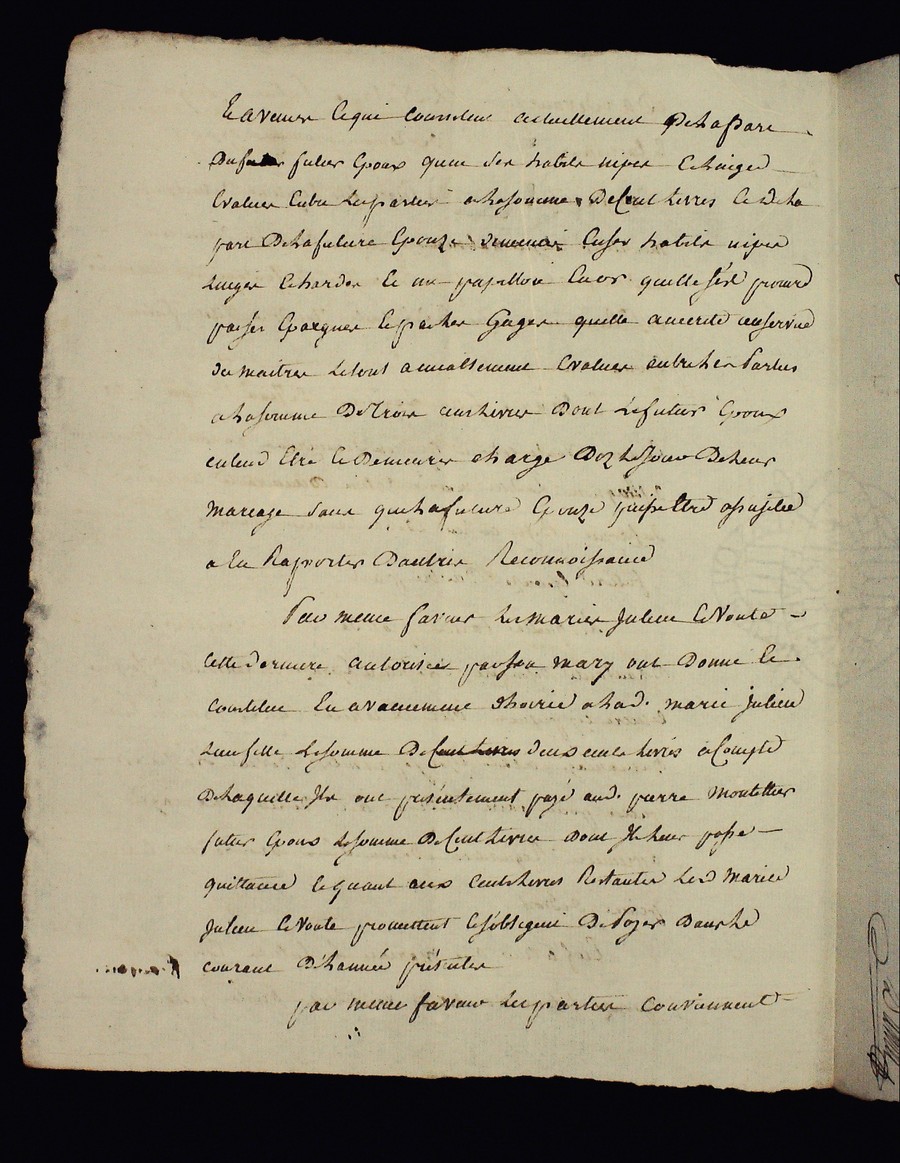 Et avenir lequi consiste actuellement Dela part
Du futur Epoux quen ses habits nipes & linges
Evalues Entre les parties a la somme De Cent livres Et De la
part De la future Epouze en ses habits nipes
Linges & hardes Et un papillon En or quelle s'est procuré
par ses Epargnes Et par les Gages quelle a merité au service
des maitres Le tout amiablement Evalué entre les Parties
a la somme De Trois cens livres Dont Le futur Epoux
entend Etre Et Demeurer chargé Dez le jour De leur
mariage sans que la future Epouze puisse Etre assujettie
a En Raporter Dautres Reconnoissance
Par meme faveur Les mariés Julien Et Voute
cette derniere autorisée par son mary ont Donné Et
constitué En avancement d'hoirie a lad. marie julien
Leur fille La somme De deux cents livres a Compte
De laquelle Ils ont présentement payé aud. pierre Montellier
futur Epoux La somme De Cent livres dont Il leur passe
quittance Et quant aux Cent livres Restantes Lesd Mariés
Julien Et Voute promettent Et s'obligent De Payer Dans le
courant De l'année présente
par meme faveur Les parties Conviennent